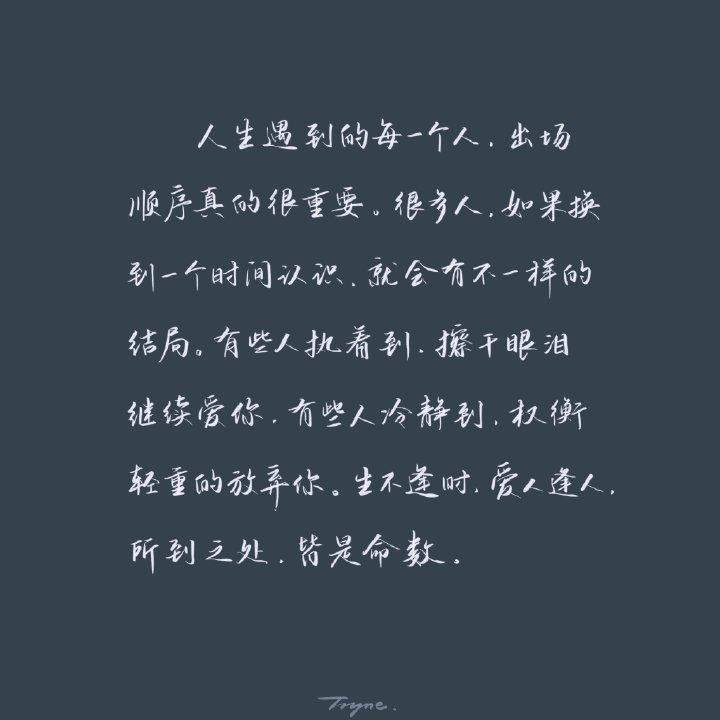 人生遇到的每一个人,出场
顺序真的很重要。很多人,如果换
到一个时间认识,就会有不一样的
结局。有些人执着到,擦干眼泪
继续爱你,有些人冷静到,权衡
轻重的放弃你。生不逢时,爱人逢人,
所到之处,皆是命数。
Tryne.